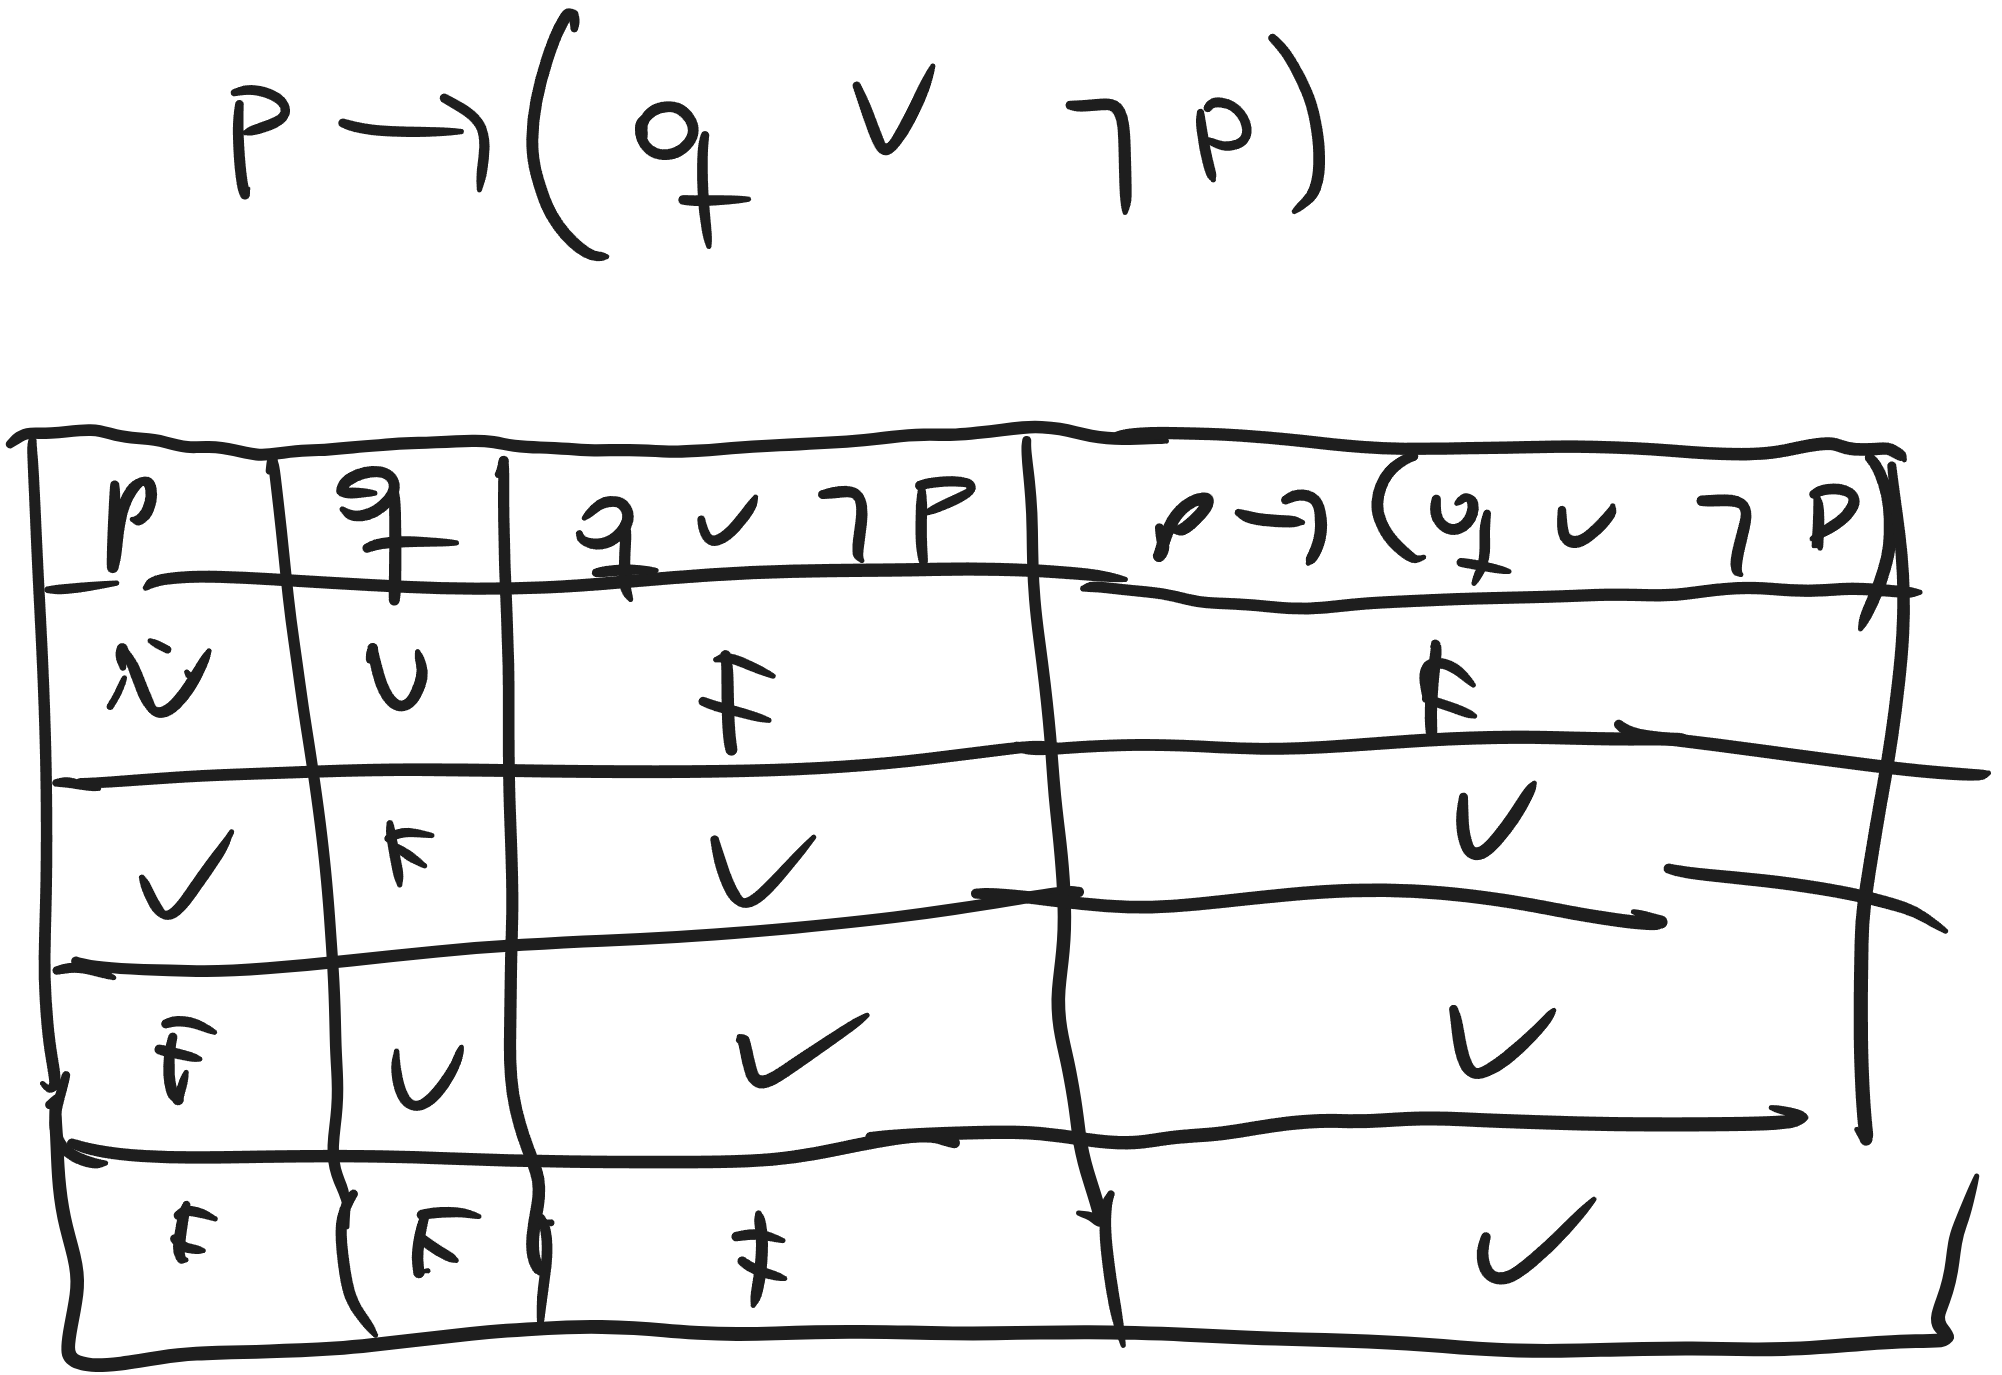 p → ( q ∨ ¬ p )
p q q ∨ ¬ p p → ( q ∨ ¬ p )
V V F F
V F V V
F V V V
F F F V